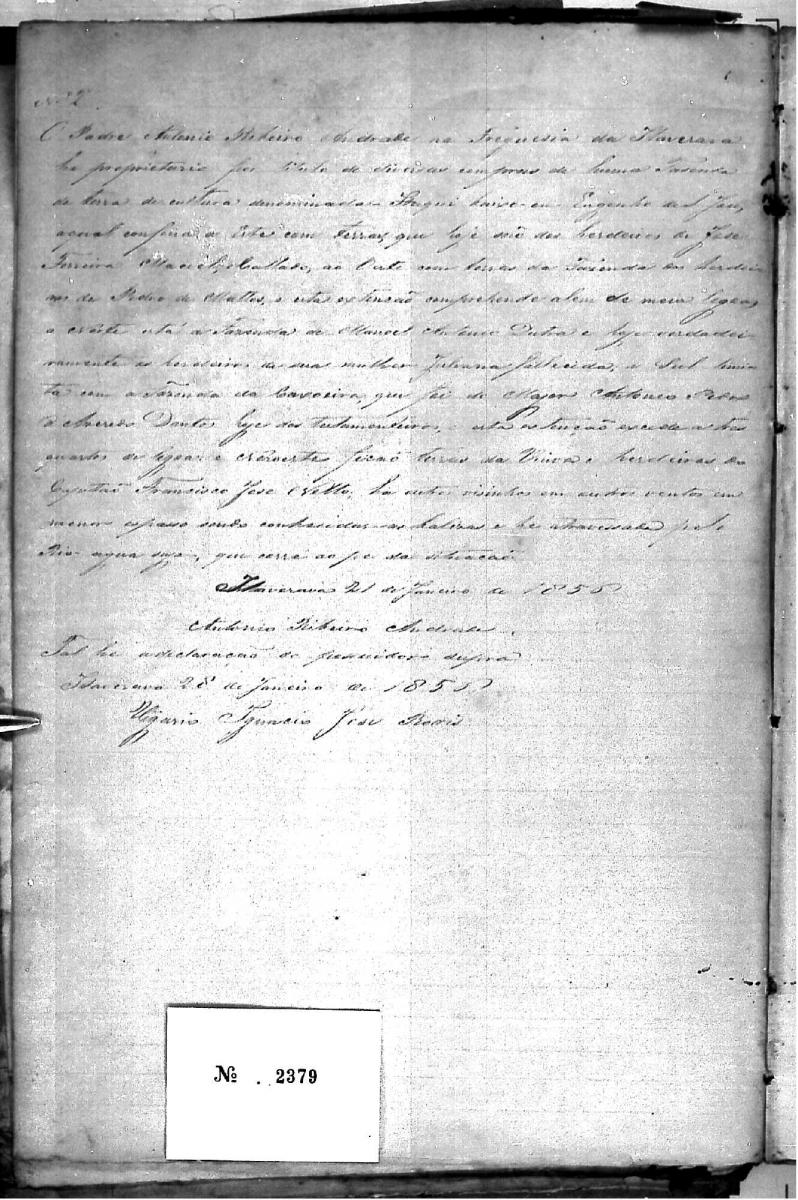 Nº 2
O Padre Antonio Ribeiro Andrade na Freguesia da Itaverava
he proprietario por titulo de diversas compras de huma Fasenda
de terra de cultura denominada baixo ou Engenho de S. José,
a qual confina a Este com terras, que hoje são dos herdeiros de José
Ferreira Maciel, ao Oeste com terras da Fazenda dos herdei
ros de Pedro de Mattos, e esta extensão comprehende alem de meia legoa,
a está a Fazenda de Manoel Antonio Dutra e hoje verdadei
ramente os herdeiros de sua mulher Juliana fallecida, o Sul limi
ta com a Fazenda da Caxoeira, que foi do Major Antonio
d'Azeredo Dantas hoje dos testamenteiros, e esta extenção excede a tres
quartos de legoa, e ficaõ terras da Viuva e herdeiros do
Capitaõ Francisco Jose Netto, ha outros visinhos em outros ventos em
menor espasso sendo conhecidas as balizas e he atravessada pelo
Rio agua suja, que corre ao pé da situaçaõ
Itaverava 21 de Janeiro de 1855
Antonio Ribeiro Andrade
Tal he a declaraçaõ do possuidor supra
Itaverava 28 de Janeiro de 1855
Vigario Ignacio José
Nº . 2379